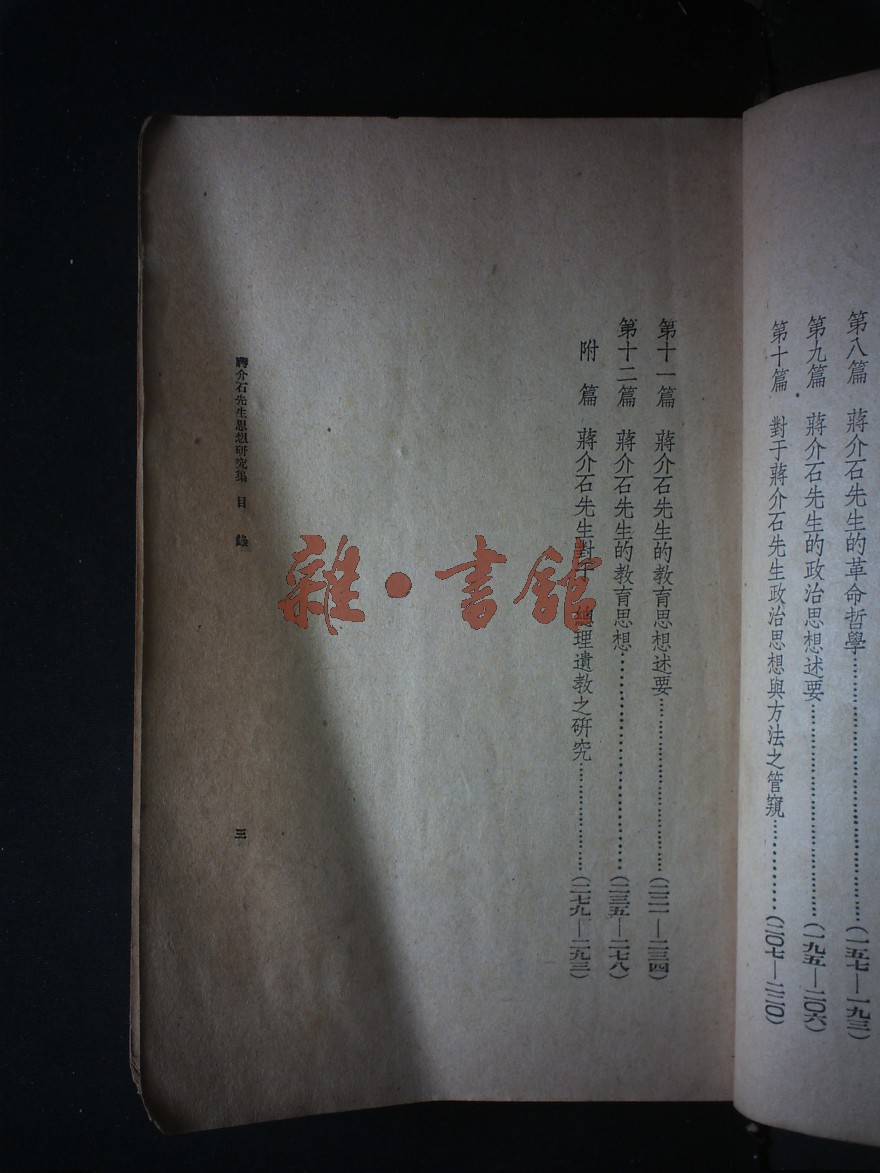 第八篇 蔣介石先生的革命哲學……………………………(一五七—一九三)
第九篇 蔣介石先生的政治思想述要……………………(一九五—二〇六)
第十篇 對于蔣介石先生政治思想與方法之管窺…………(二〇七—二二〇)
第十一篇 蔣介石先生的教育思想述要……………………(二二一—二三四)
第十二篇 蔣介石先生的教育思想…………………………(二三五—二七八)
附篇 蔣介石先生對于 總理遺教之研究……………(二七九—二九三)
蔣介石先生思想研究集 目錄 三
雜·書館